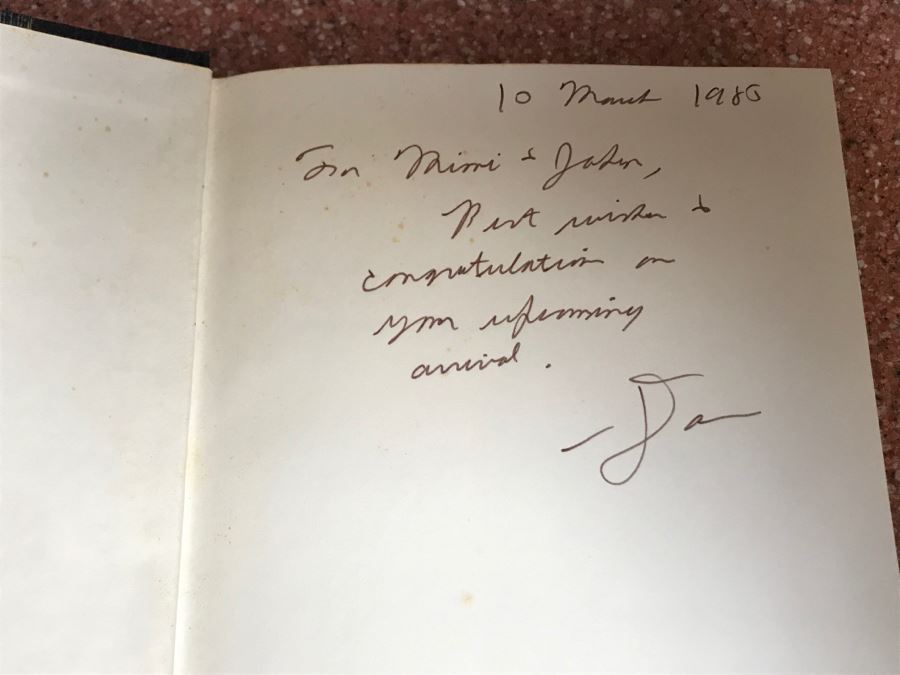 10 March 1980
For Mimi & John,
Best wishes &
congratulations on
your upcoming
arrival.
— Dan